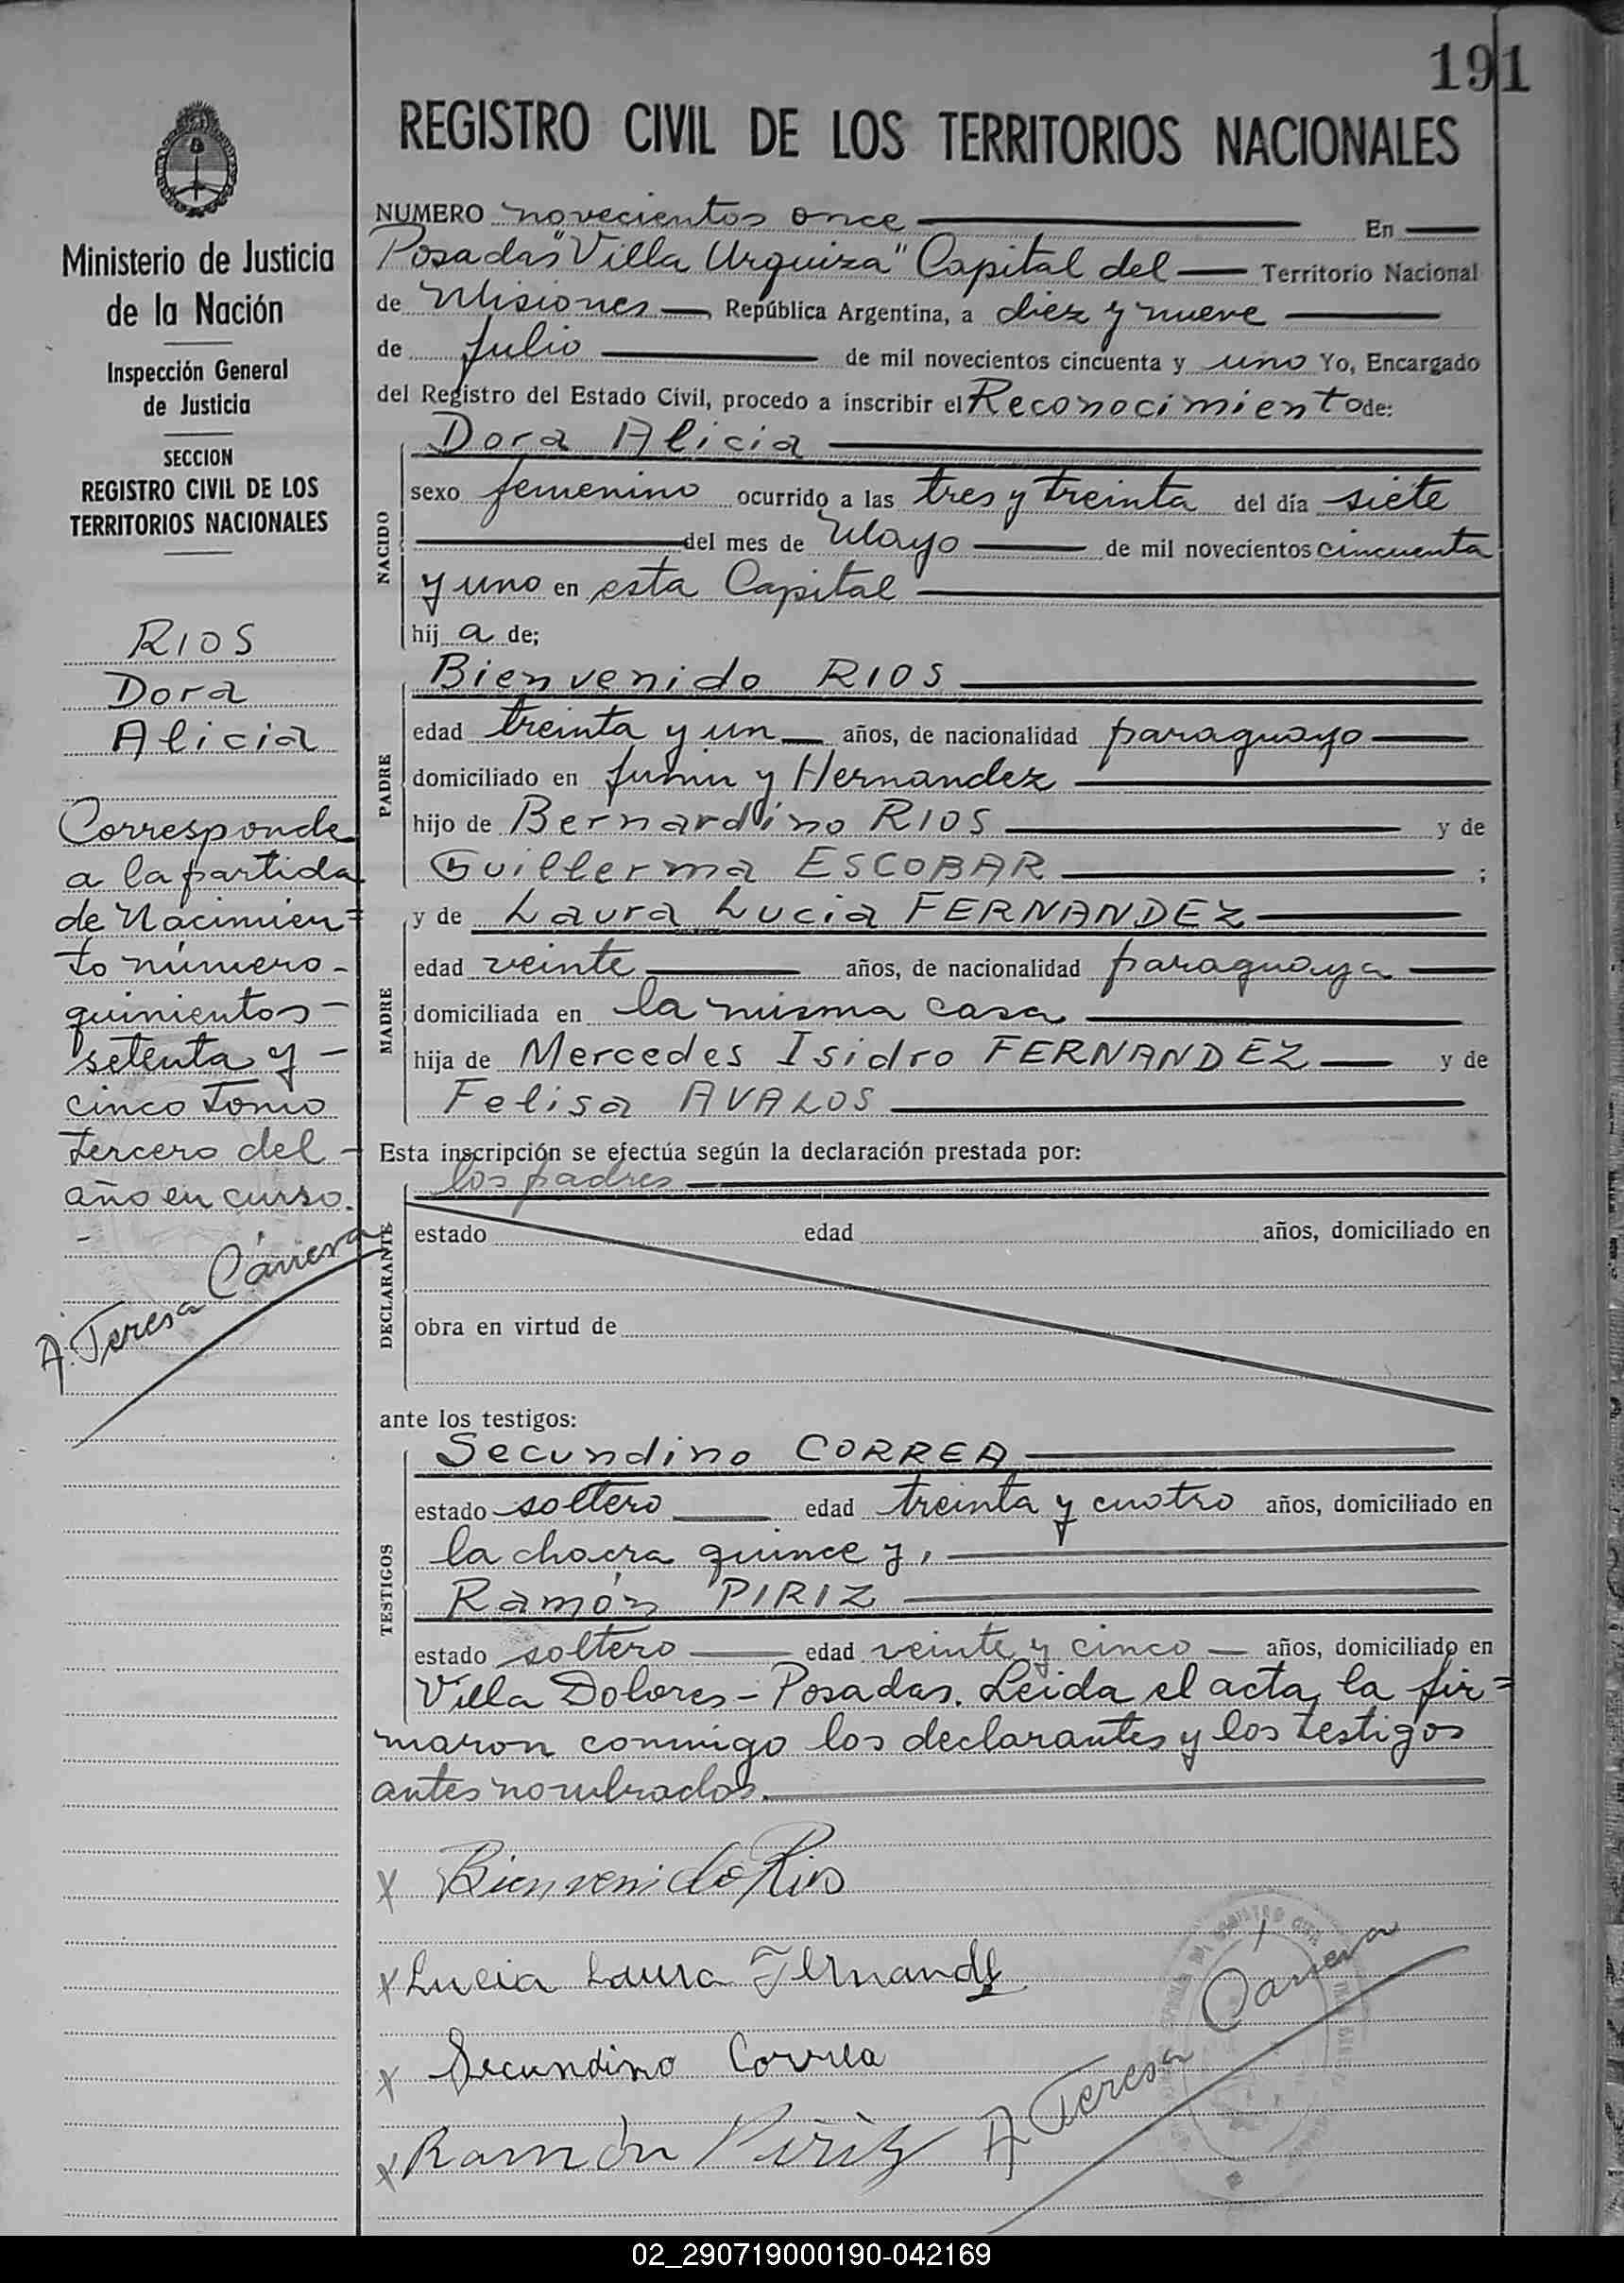 191
REGISTRO CIVIL DE LOS TERRITORIOS NACIONALES
Ministerio de Justicia
de la Nación
Inspección General
de Justicia
SECCION
REGISTRO CIVIL DE LOS
TERRITORIOS NACIONALES
RIOS
Dora
Alicia
Corresponde
a la partida
de Nacimien=
to número-
quinientos-
setenta y-
cinco Tomo
tercero del-
año en curso.
-
A. Teresa
NUMERO novecientos once En
Posadas "Villa Urquiza" Capital del Territorio Nacional
de Misiones República Argentina, a diez y nueve
de Julio de mil novecientos cincuenta y uno Yo, Encargado
del Registro del Estado Civil, procedo a inscribir el Reconocimiento de:
NACIDO
Dora Alicia
sexo femenino ocurrido a las tres y treinta del día siete
del mes de Mayo de mil novecientos cincuenta
y uno en esta Capital
hij a de;
PADRE
Bienvenido RIOS
edad treinta y un años, de nacionalidad paraguayo
domiciliado en Junin y Hernandez
hijo de Bernardino RIOS y de
Guillerma ESCOBAR ;
MADRE
y de Laura Lucia FERNANDEZ
edad veinte años, de nacionalidad paraguaya
domiciliada en la misma casa
hija de Mercedes Isidro FERNANDEZ y de
Felisa AVALOS
Esta inscripción se efectúa según la declaración prestada por:
DECLARANTE
los padres
estado edad años, domiciliado en
obra en virtud de
ante los testigos:
TESTIGOS
Secundino CORREA
estado soltero edad treinta y cuatro años, domiciliado en
la chacra quince y,
Ramón PIRIZ
estado soltero edad veinte y cinco años, domiciliado en
Villa Dolores - Posadas. Leida el acta, la fir=
maron conmigo los declarantes y los testigos
antes nombrados.
x Bienvenido Rios
x Lucia Laura Fernandez
x Secundino Correa
x Ramón Píriz
A Teresa
02_290719000190-042169